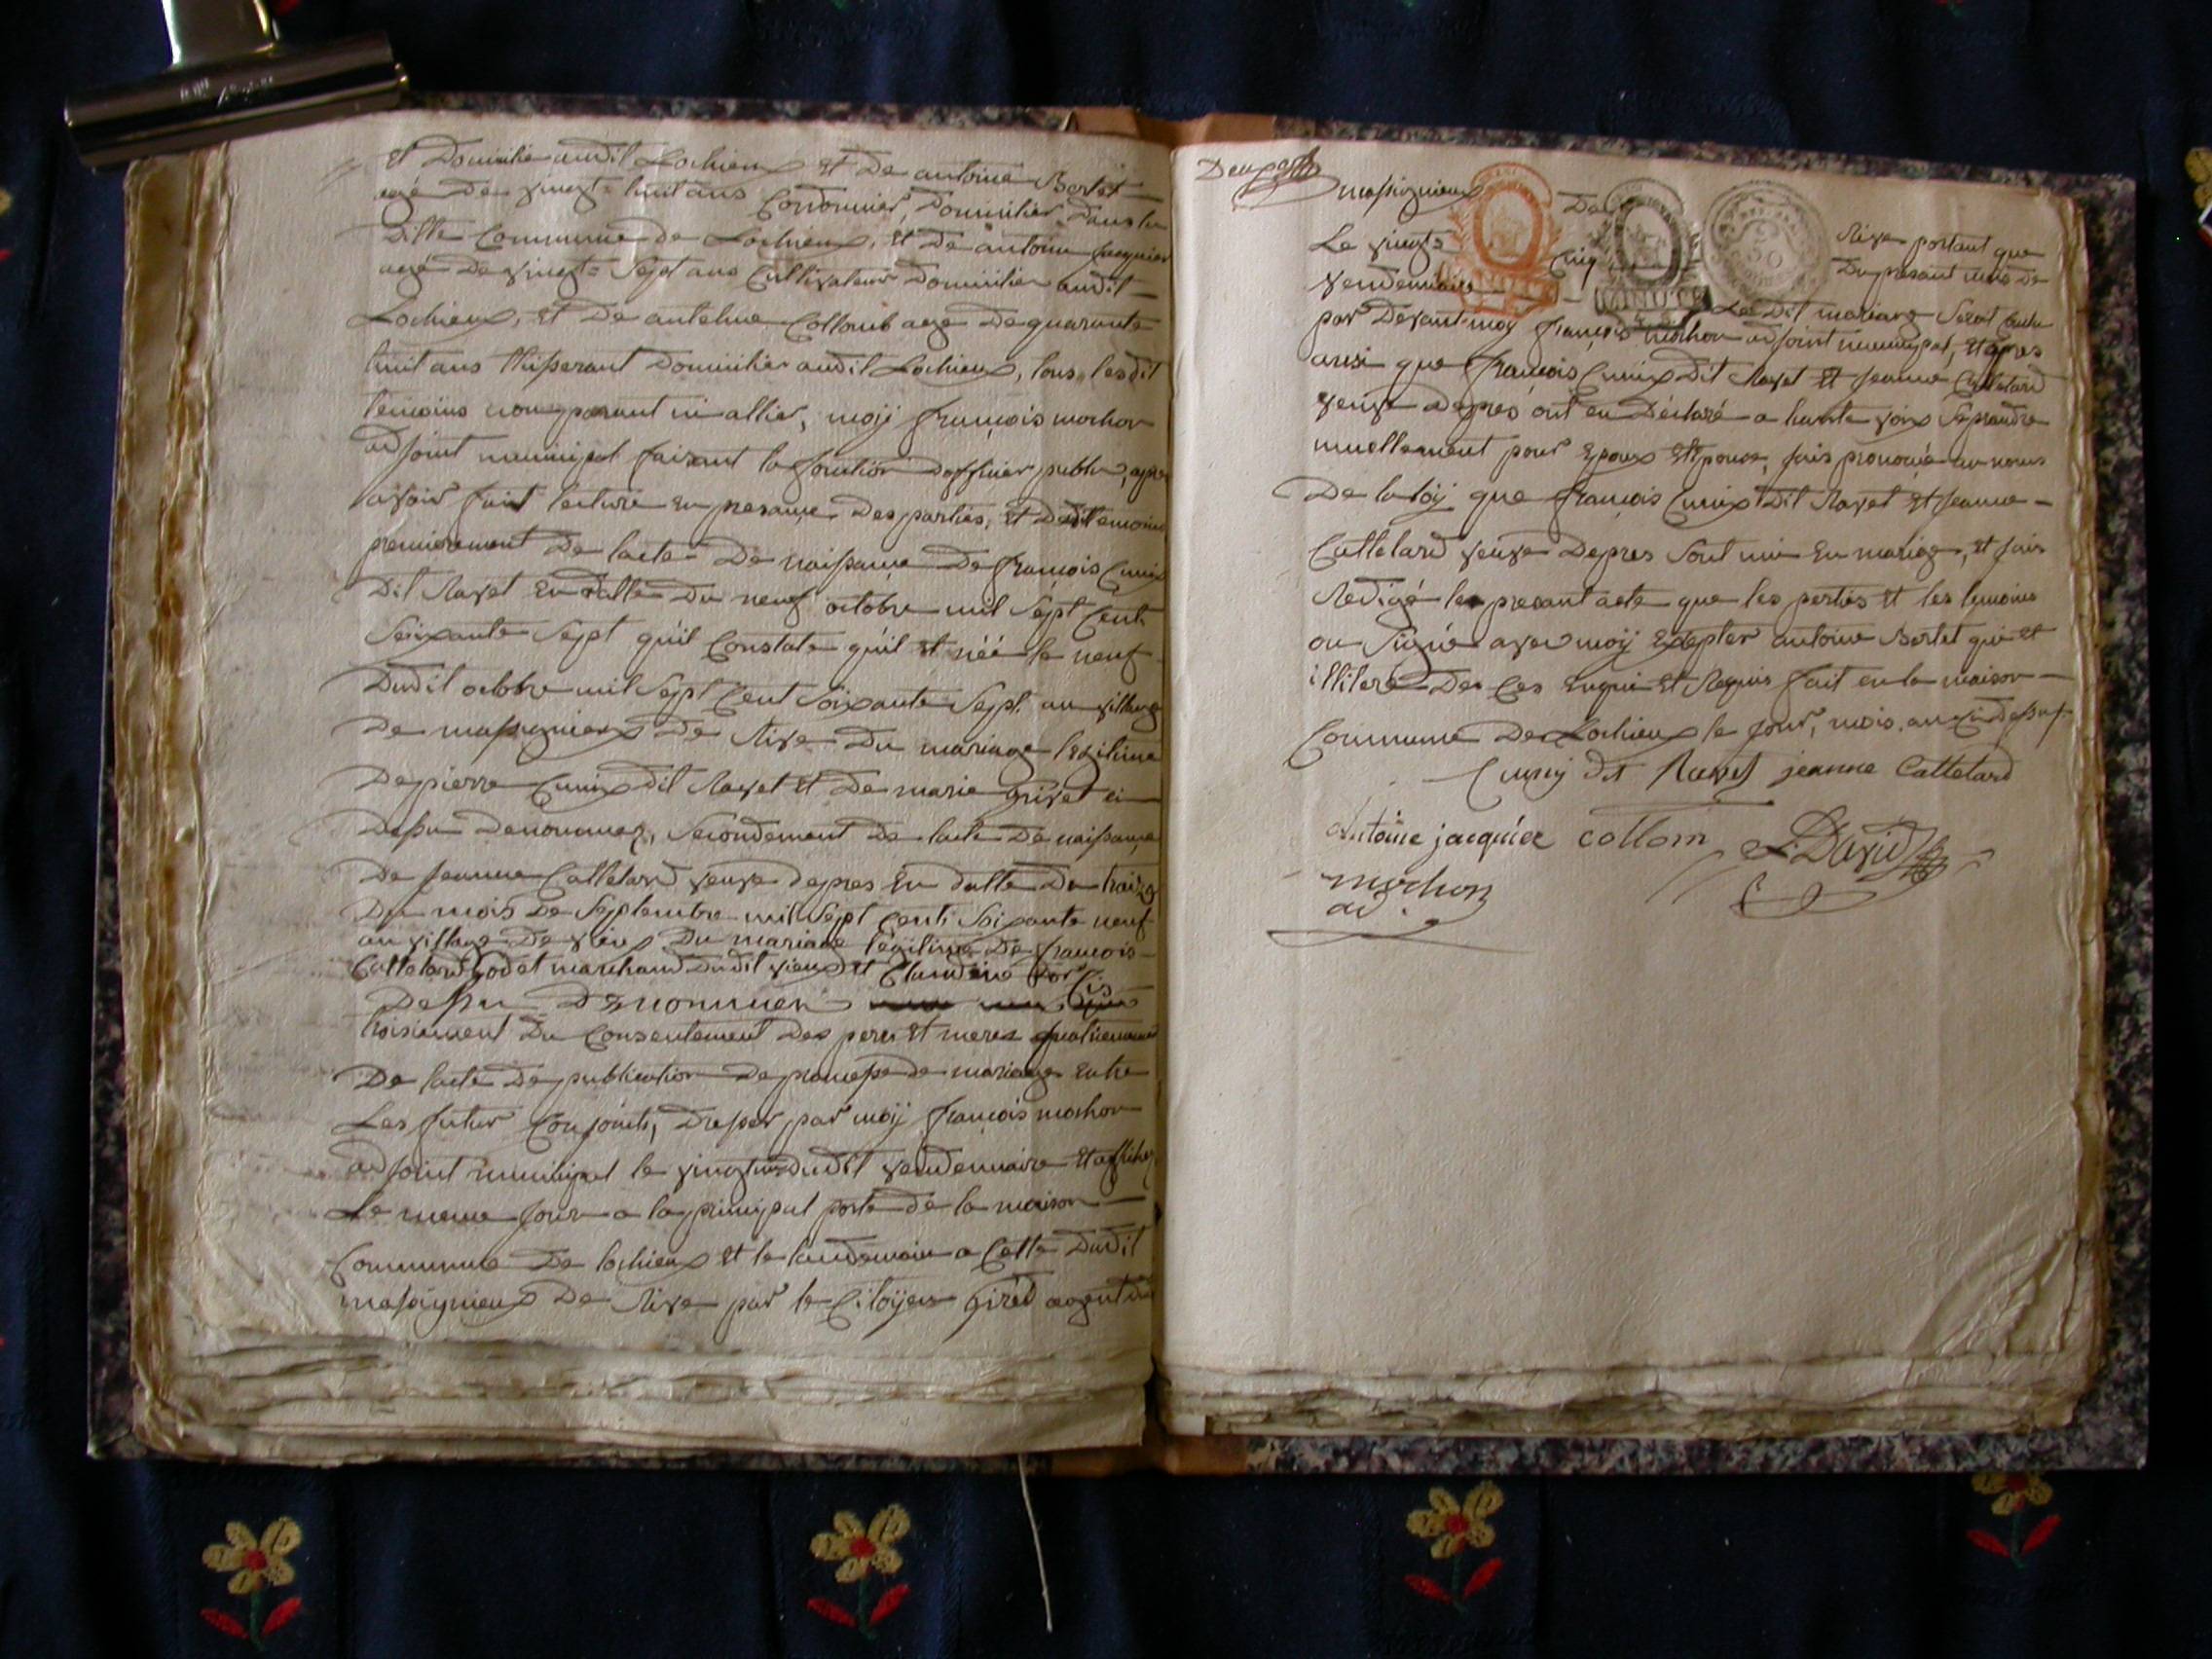 et Domicilié audit Lochieux et De antoine Bertet
agé De vingt-huit ans Cordonnier, Domicilier Dans la
ditte Commune de Lochieux, et De antoine Jacquier
agé De vingt-Sept ans Cultivateur Domicilier audit
Lochieux, et De antelme Collomb age De quarante
huit ans thisserant Domicilier audit Lochieux, tous lesdit
temoins non parant ni allier, moÿ françois mochon
adjoint municipal faisant la fonction Dofficier public, apre
avoir fait lecture en presance Des parties, et Dedit temoins
premierement De lacte De naissance De françois Cunix
Dit Ravet En Datte Du neuf octobre mil Sept Cent
Soixante Sept qu'il Constate qu'il et néé le neuf
Dudit octobre mil Sept Cent Soixante Sept au village
De massignieux De Rive Du mariage legitime
De pierre Cunix Dit Ravet et De marie grivet ci
Dessu Denommez, Secondement De lacte De naissance
De Jeanne Cattelard veuve depres En datte Du traize
Du mois De Septembre mil Sept Cent Soixante neuf
au village De vieu Du mariage légitime De françois
Cattelard Godet marchand Dudit vieux et Claudine
Dessu Denommer
troisiement Du Consentement Des peres et meres quatriemement
De lacte De publication De promesse de mariage Entre
Les futur Conjoints, Dresser par moÿ françois mochon
adjoint municipal le Dudit vendemiaire et afficher
Le meme Jour a la principal porte De la maison
Commune De lochieux et le landemain a Cette Dudit
massignieux De Rive par le Citoÿen Giréd agent Du
Deux
massignieux De Rive portant que
Le vingt Cinq Du présant mois De
vendemiaire Le Dit mariage Serat
par Devant moy françois mochon adjoint municipal, et apres
ausi que françois Cunix Dit Ravet et Jeanne Cattelard
veuve Depres ont eu Déclaré a haute voix Se prandre
muellement pour Epoux et Epouse, Jais prononcé au nom
De la loÿ que françois Cunix Dit Ravet et Jeanne
Cattelard veuve Depres Sont uni En mariage, et Jais
Redigé le presant acte que les parties et les temoins
on Signé avec moÿ Exepter antoine Bertet qui et
illiteré De Ces Enquis et Requis fait en la maison
Commune De Lochieux le Jour, mois, an ci dessus
Cuny dit Ravet jeanne Cattelard
Antoine jacquier collom L. David
mochon
ad.